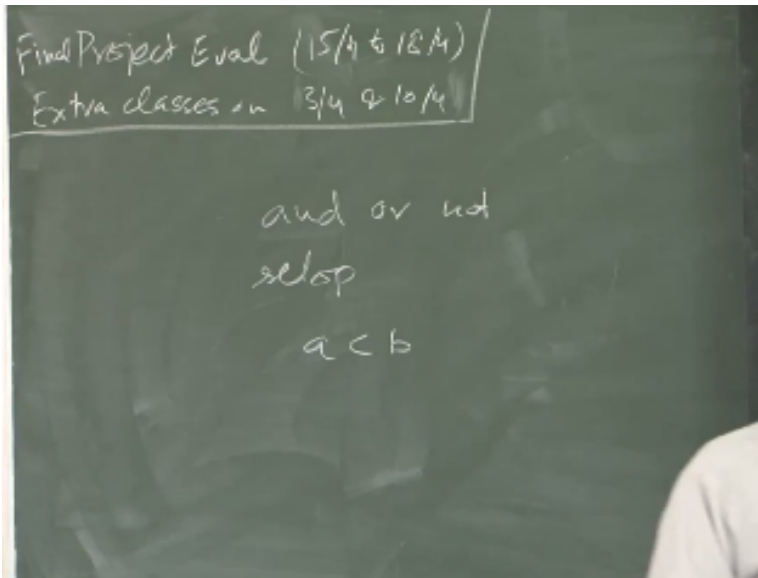 Final Project Eval (15/4 to 18/4)
Extra classes on 3/4 & 10/4
and or not
relop
a < b